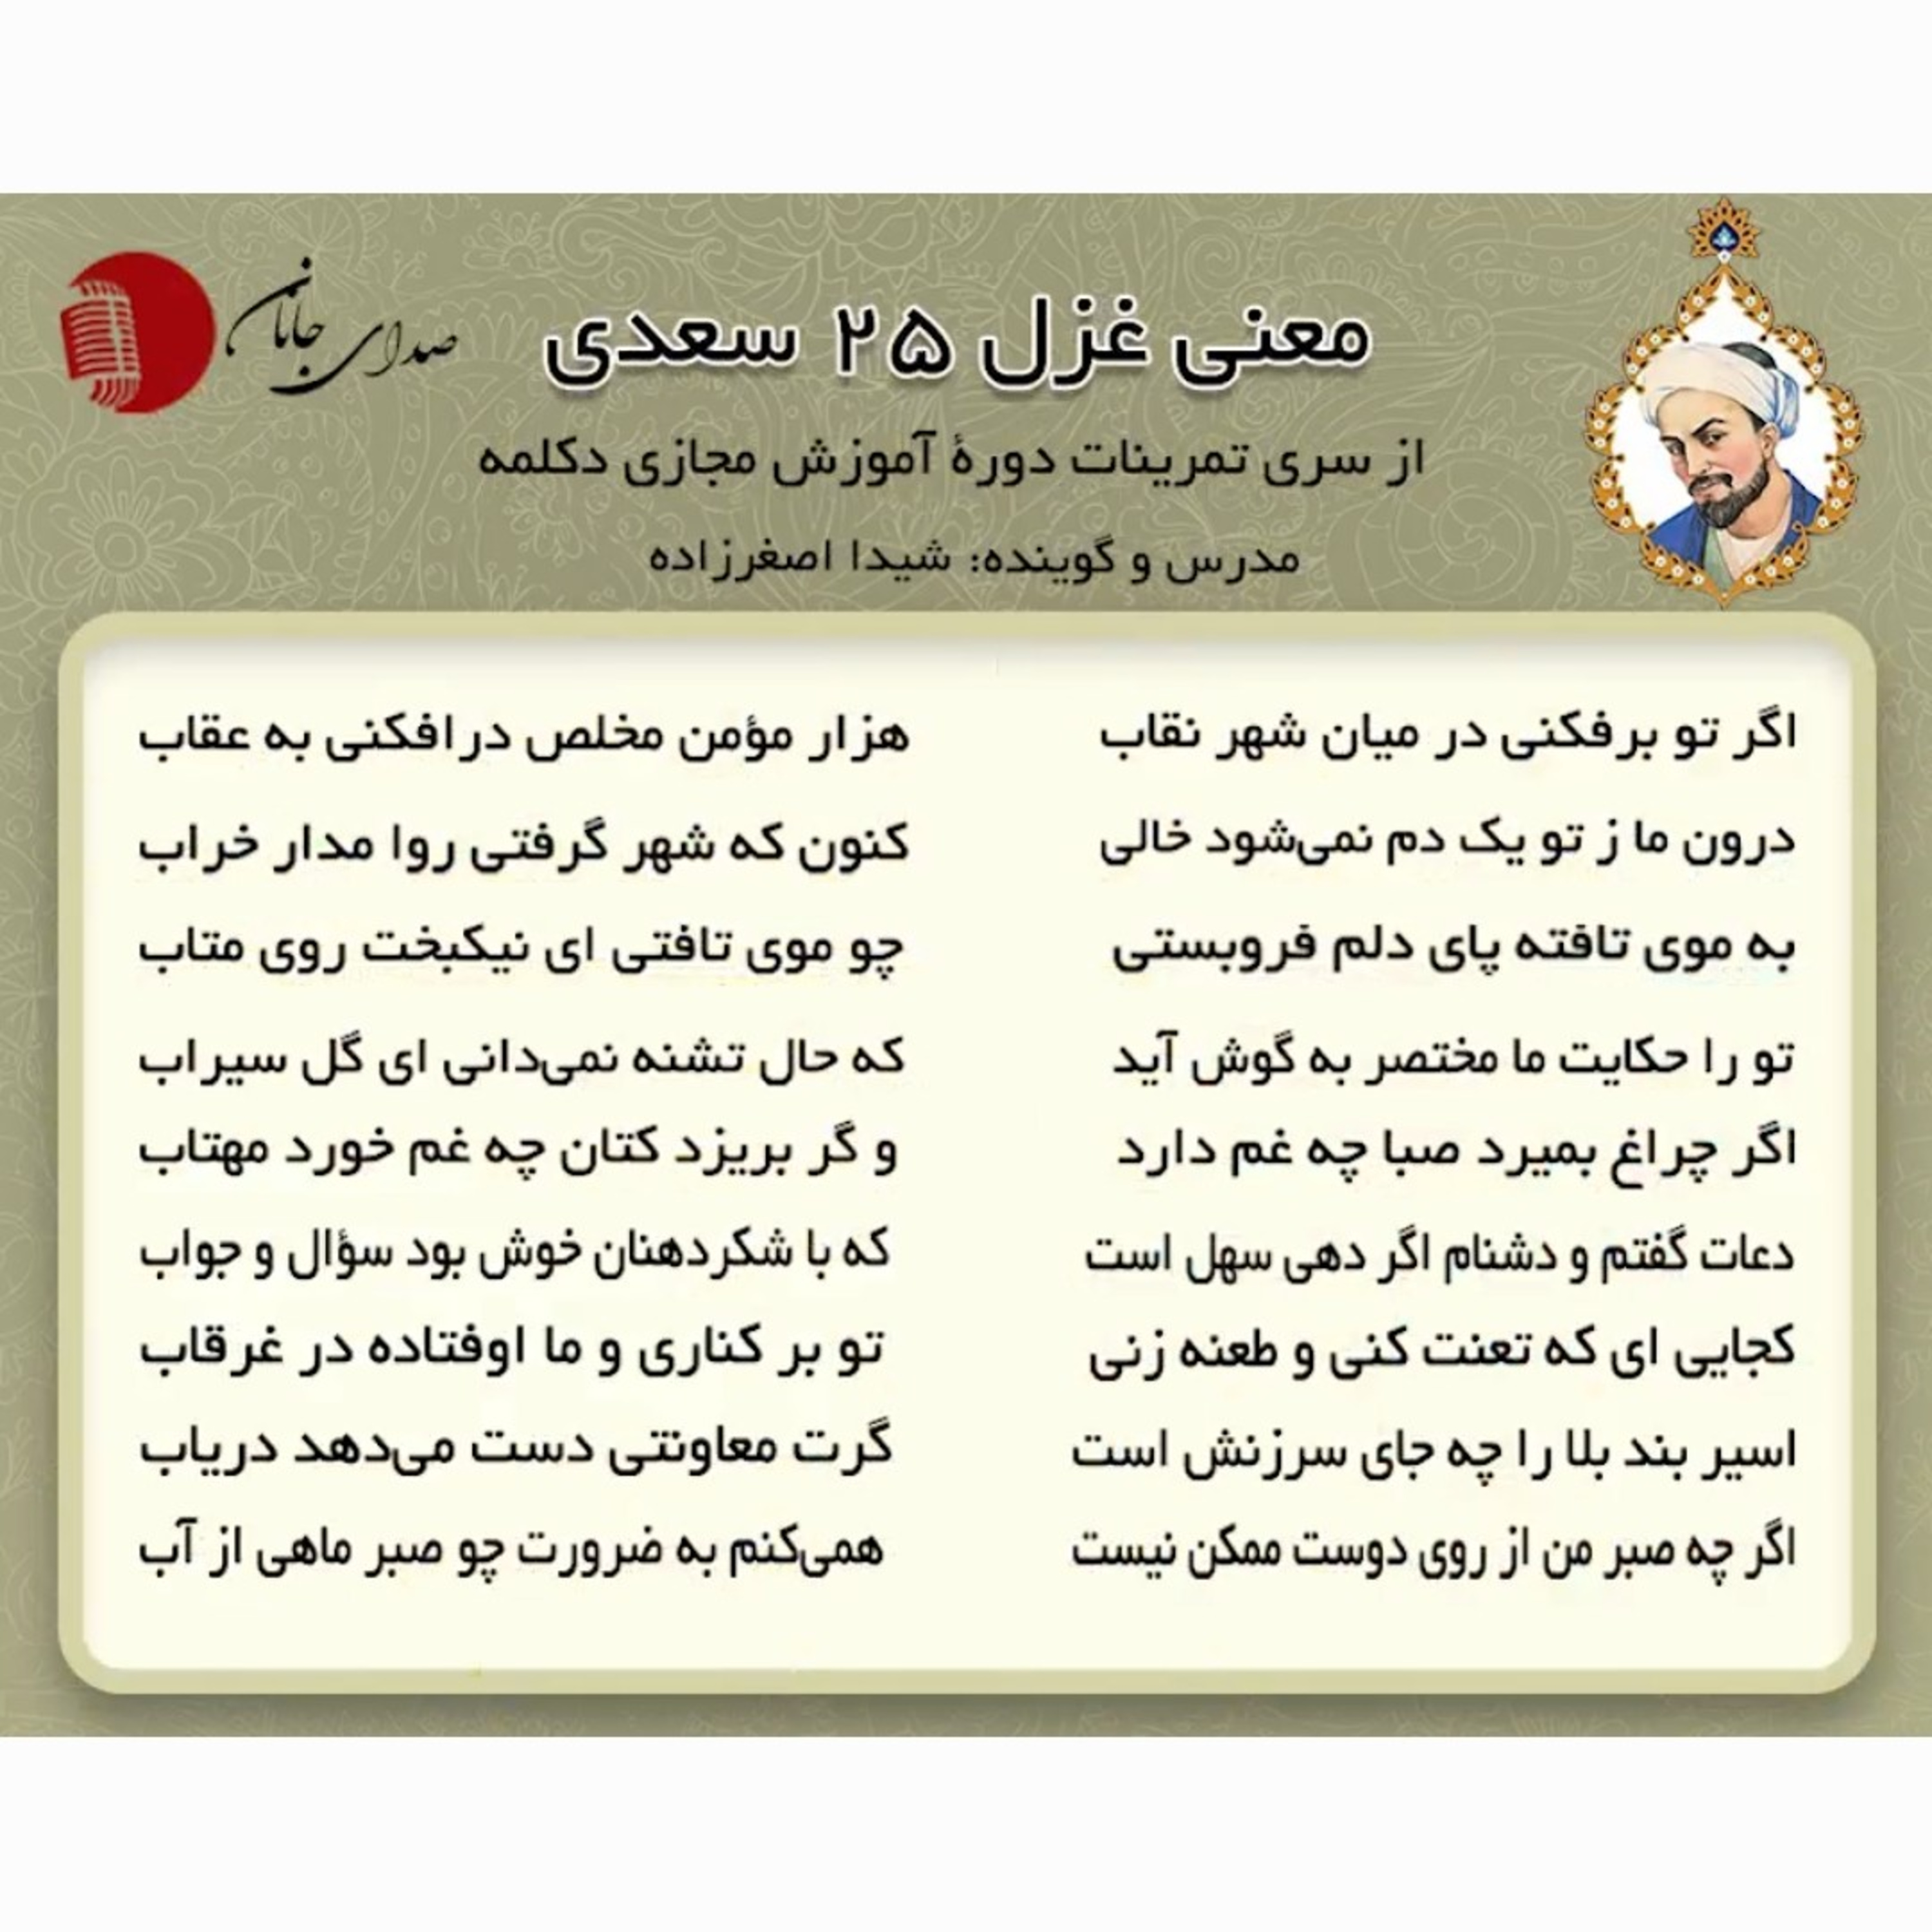 صدای جانان
معنی غزل ۲۵ سعدی
از سری تمرینات دورهٔ آموزش مجازی دکلمه
مدرس و گوینده: شیدا اصغرزاده
اگر تو برفکنی در میان شهر نقاب هزار مؤمن مخلص درافکنی به عقاب
درون ما ز تو یک دم نمی‌شود خالی کنون که شهر گرفتی روا مدار خراب
به موی تافته پای دلم فروبستی چو موی تافتی ای نیکبخت روی متاب
تو را حکایت ما مختصر به گوش آید که حال تشنه نمی‌دانی ای گل سیراب
اگر چراغ بمیرد صبا چه غم دارد و گر بریزد کتان چه غم خورد مهتاب
دعات گفتم و دشنام اگر دهی سهل است که با شکردهنان خوش بود سؤال و جواب
کجایی ای که تعنت کنی و طعنه زنی تو بر کناری و ما اوفتاده در غرقاب
اسیر بند بلا را چه جای سرزنش است گرت معاونتی دست می‌دهد دریاب
اگر چه صبر من از روی دوست ممکن نیست همی‌کنم به ضرورت چو صبر ماهی از آب